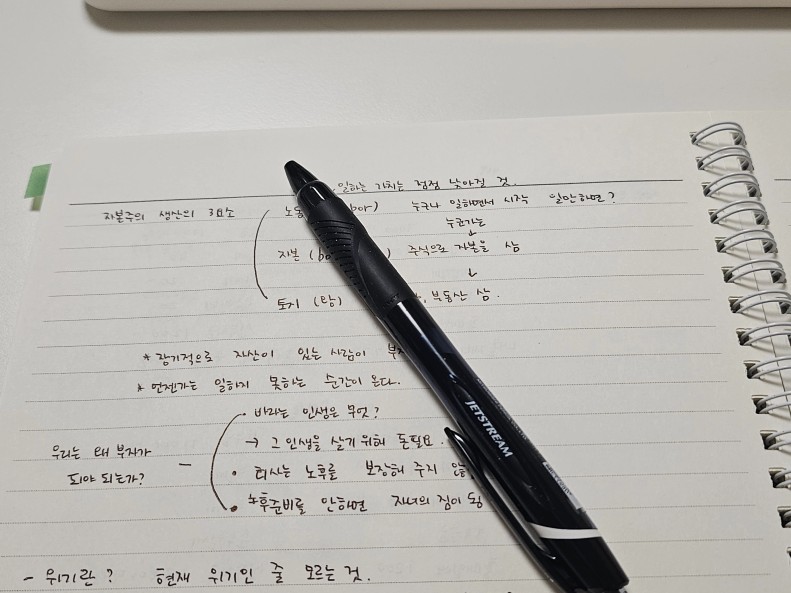 일하는 가치는 점점 낮아질 것.
자본주의 생산의 3요소
누구나 일하면서 시작 일안하면?
누군가는
↓
자본 ( ) 주식으로 자본을 삼
↓
토지 (땅) 부동산 삼.
* 장기적으로 자산이 있는 사람이
* 언젠가는 일하지 못하는 순간이 온다.
• 바라는 인생은 무엇?
우리는 왜 부자가
되야 되는가?
→ 그 인생을 살기 위해 돈필요.
• 회사는 노후를 보장해 주지
• 노후준비를 안하면 자녀의 짐이 됨
- 위기란? 현재 위기인 줄 모르는 것.
JETSTREAM